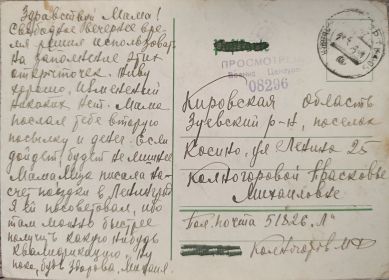 Здравствуй Мама!
Свободное вечернее вре
мя решил использовать
на заполнение этих
открыточек. Живу
хорошо, изменений
никаких нет. Мама
послал тебе вторую
посылку и денег. Если
дойдет, будет не лишнее
Мама Муся писала на
счет поездки в Ленинград
Я ей посоветовал, ибо
там можно быстрее
получить какую нибудь
квалификацию. Ну
пока, будь здорова, Михаил
ПРОСМОТРЕНО
Военной Цензурой
08296
Кировская область
Зуевский р-н, поселок
Косино, ул Ленина 25
Колногоровой Прасковье
Михайловне
Пол. почта 51826 "Л"
Колногоров М